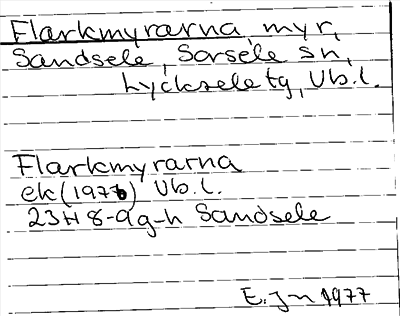 Flarkmyrarna, myr,
Sandsele, Sorsele sn,
Lycksele tg, Vb.l.
Flarkmyrarna
ek (1976) Vb.l.
23H 8-9g-h Sandsele
E. Jn 1977